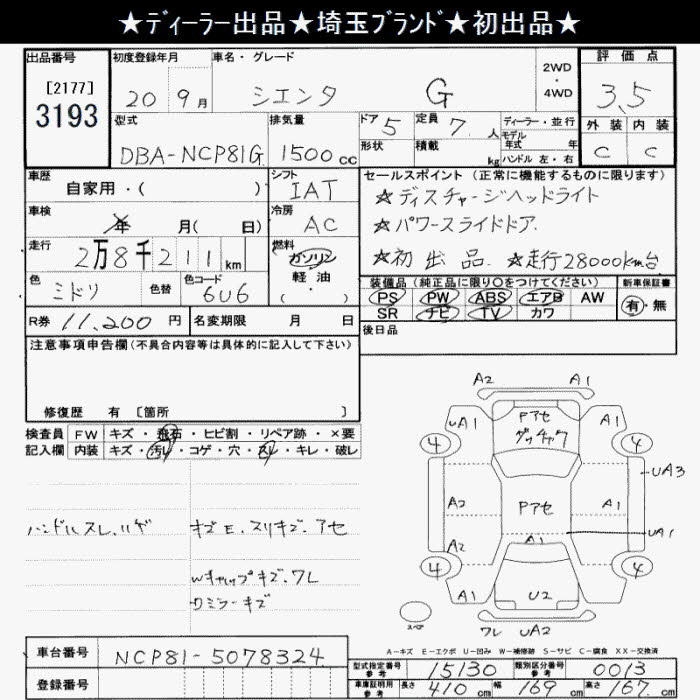 ★ディーラー出品★埼玉ブランド★初出品★
出品番号 初度登録年月 車名・グレード 2WD・4WD 評価点
[2177]
3193 20 9月 シエンタ G 3.5
型式 排気量 ドア 5 定員 7人 ディーラー・並行 外装 内装
DBA-NCP81G 1500cc 形状 積載 kg モデル年式 年 ハンドル 左・右 C C
車歴 シフト セールスポイント(正常に機能するものに限ります)
自家用・( ) IAT ☆ディスチャージヘッドライト
車検 年 月( 日) 冷房 AC ☆パワースライドドア.
走行 2万8千211km 燃料 ガソリン 軽・油 ( ) ☆初出品 ☆走行28000km台
色 ミドリ 色替 色コード 6U6 装備品(純正品に限り○をつけてください) 新車保証書
PS PW ABS エアB AW 有・無
SR ナビ TV カワ
R券 11,200円 名変期限 月 日 後日品
注意事項申告欄(不具合内容等は具体的に記入して下さい)
修復歴 有 [箇所 ]
検査員 FW キズ・飛石・ヒビ割・リペア跡・×要
記入欄 内装 キズ・汚レ・コゲ・穴・スレ・キレ・破レ
ハンドルスレ.ハゲ キズE.スリキズ.アセ
Wキャップキズ.ワレ
Dミラーキズ
A2 A1
UA1 Pアセ A1
4 4
UA3
A2 Pアセ A1
A2 A1 UA1
4 4
A1 U2 A1
スペア ワレ UA2
A-キズ E-エクボ U-凹み W-補修跡 S-サビ C-腐食 XX-交換済
車台番号 NCP81-5078324 型式指定番号参考 15130 類別区分番号参考 0013
登録番号 車庫証明用参考 長さ 410cm 幅 169cm 高さ 167cm